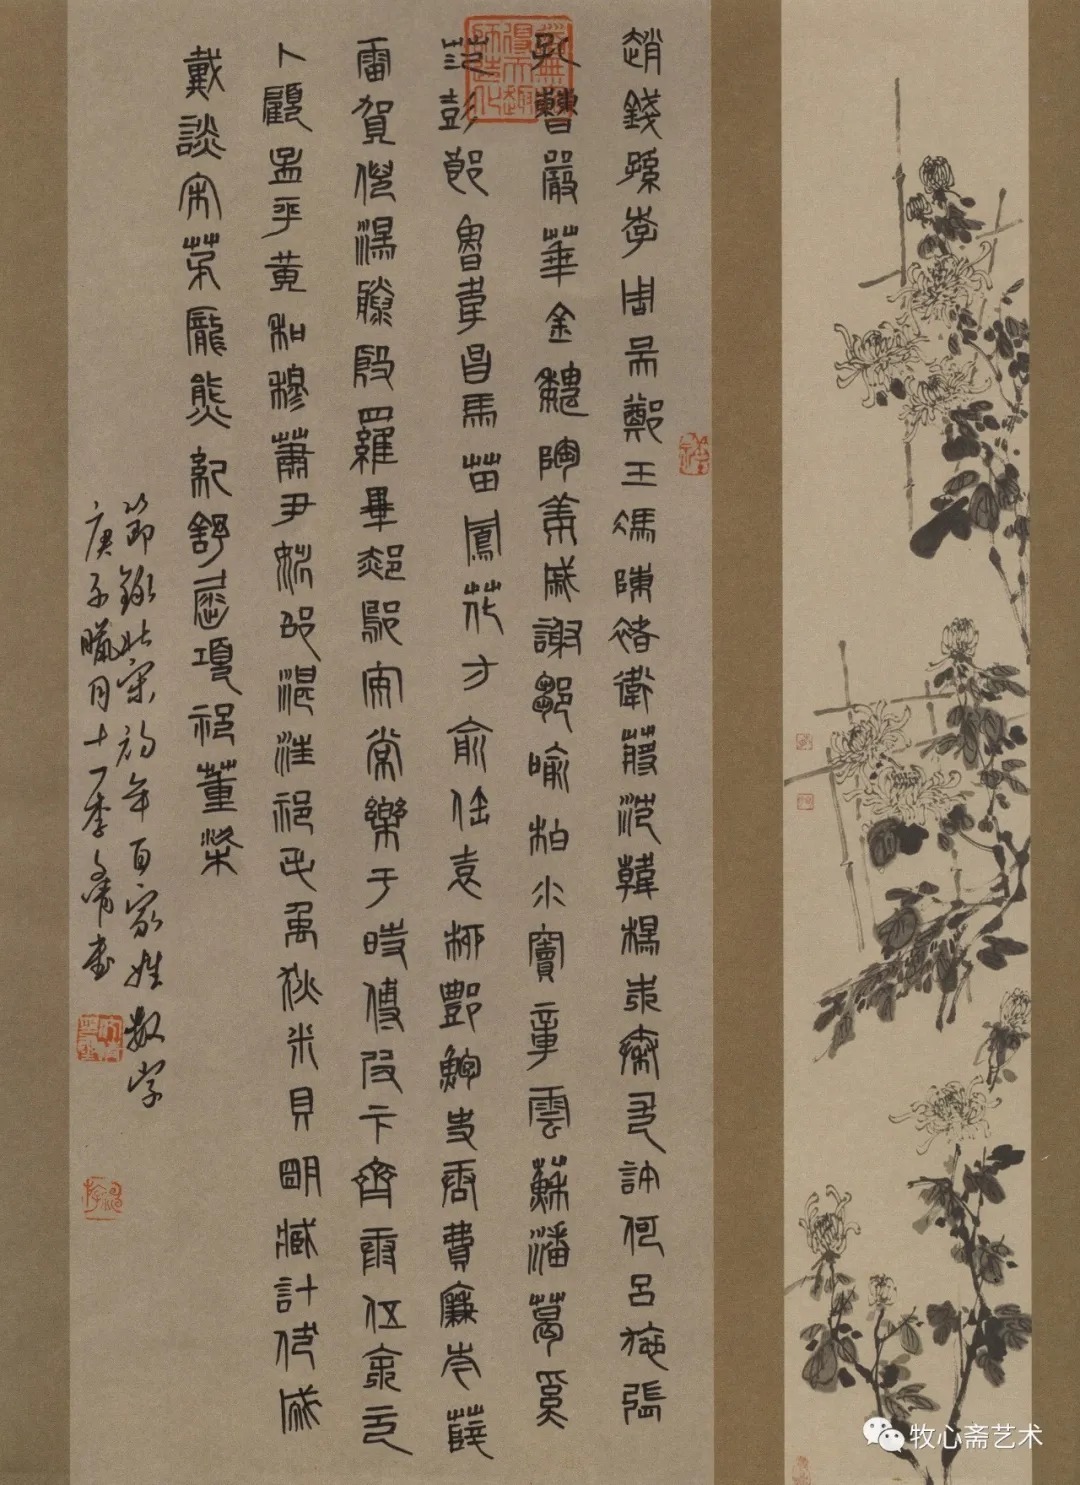 趙錢孫李周吳鄭王馮陳褚衛蔣沈韓楊朱秦尤許何呂施張
孔曹嚴華金魏陶姜戚謝鄒喻柏水竇章雲蘇潘葛奚
范彭郎魯韋昌馬苗鳳花方俞任袁柳酆鮑史唐費廉岑薛
雷賀倪湯滕殷羅畢郝鄔安常樂于時傅皮卞齊康伍余元
卜顧孟平黃和穆蕭尹姚邵湛汪祁毛禹狄米貝明臧計伏成
戴談宋茅龐熊紀舒屈項祝董梁
節錄北宋初年百家姓數字
庚子臘月十一李書
牧心斋艺术